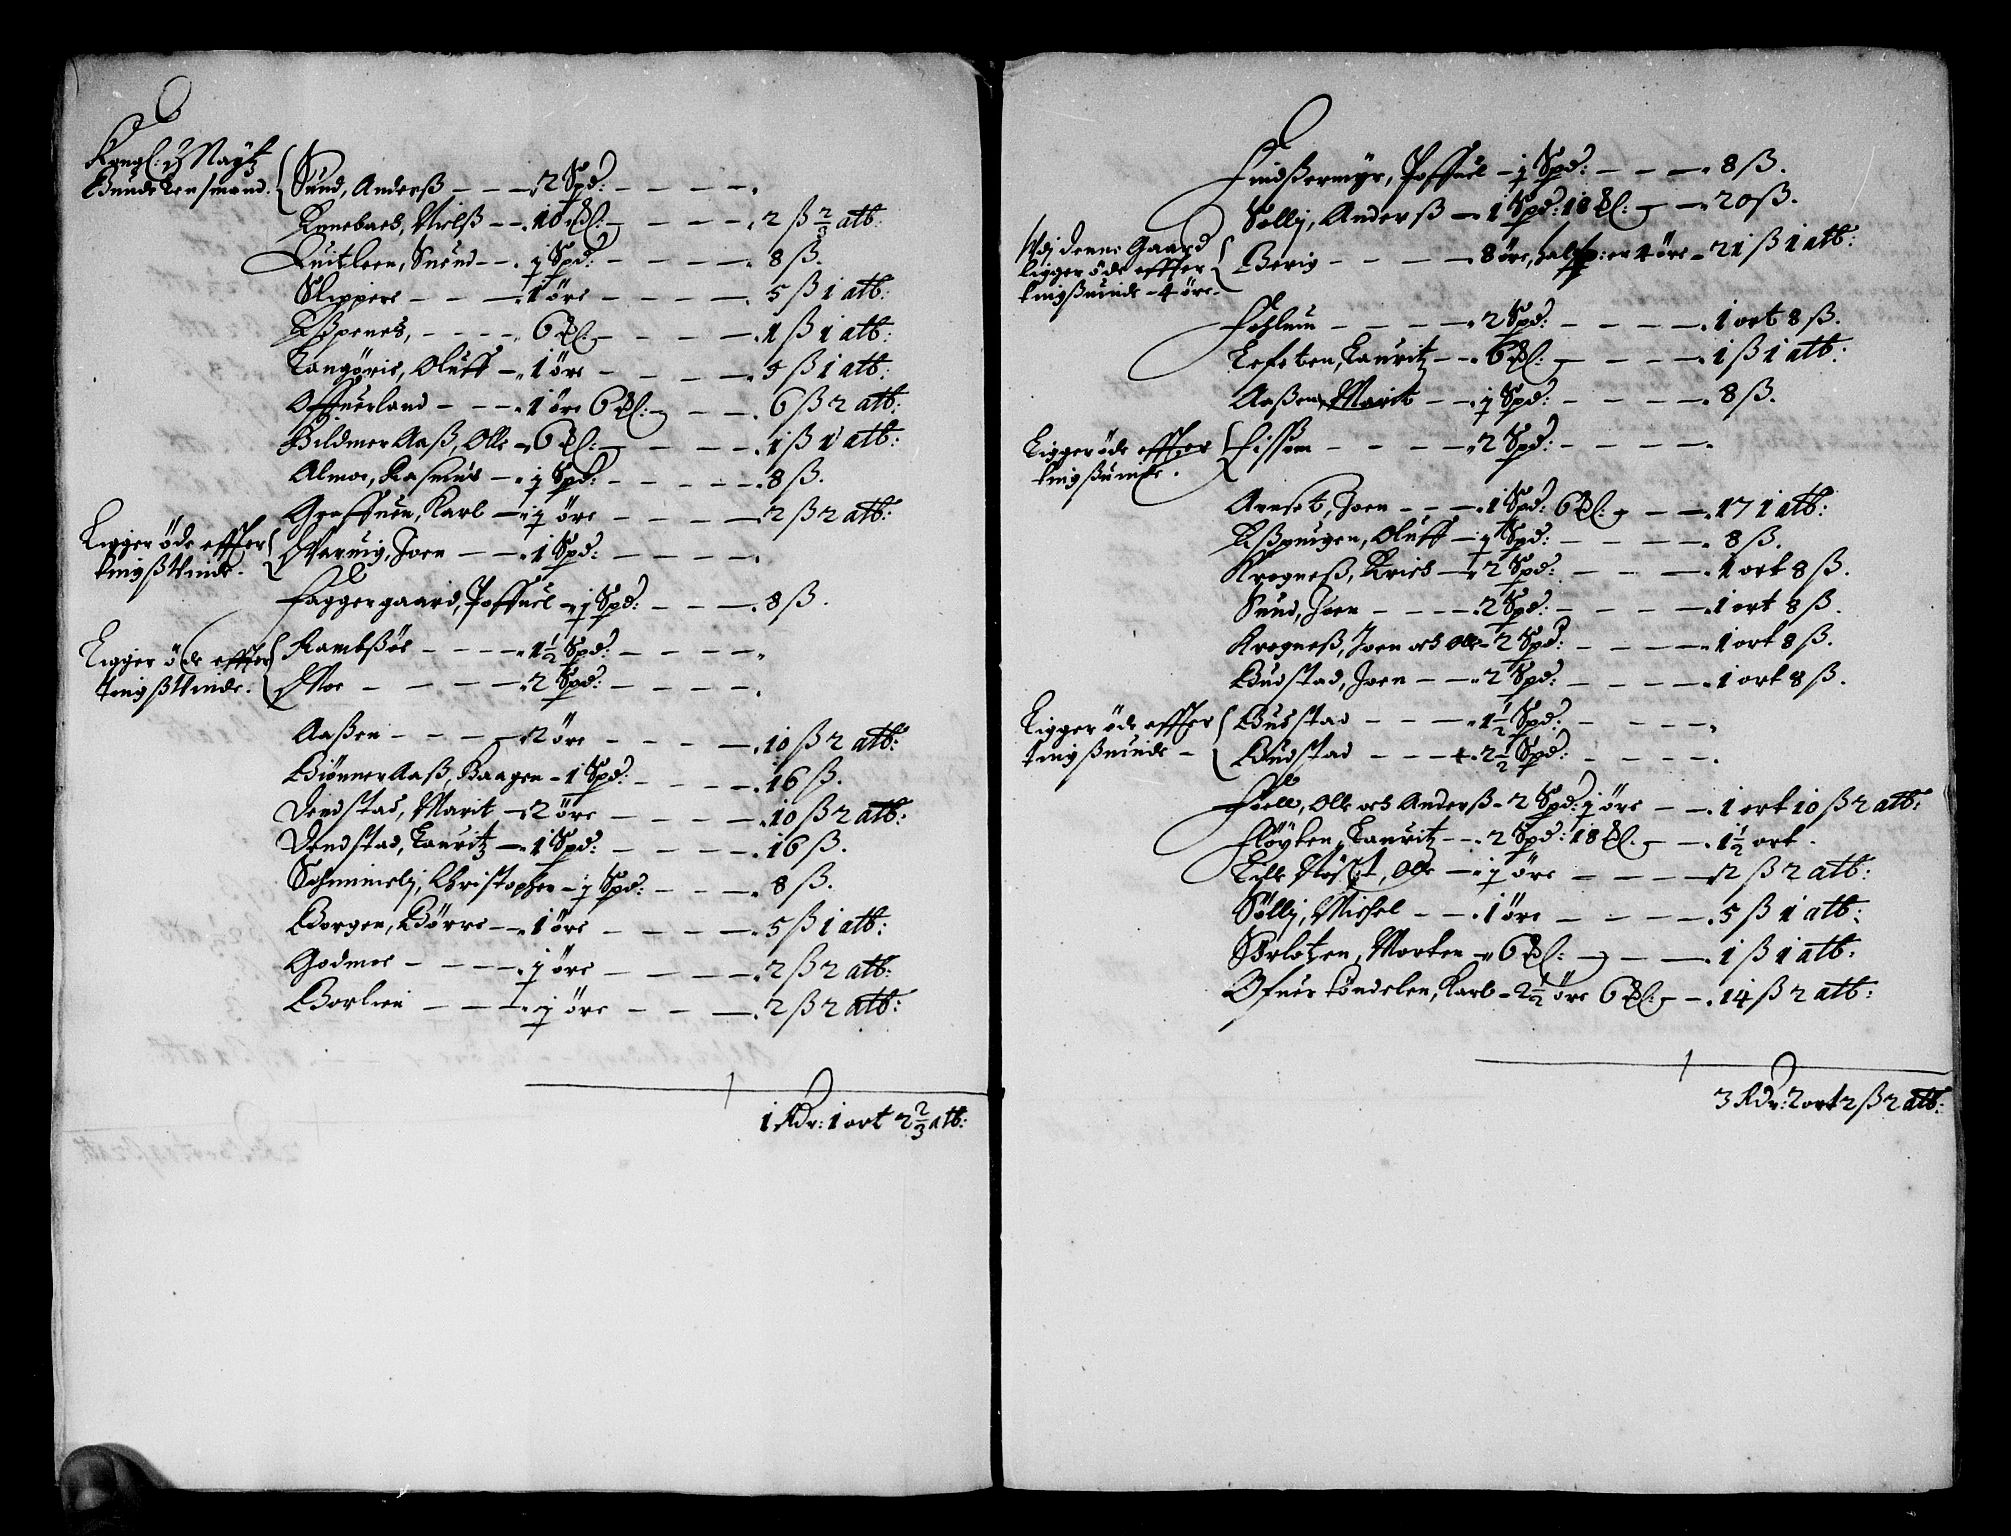 Kongl: Maÿtz
Bunde Lensmand. Sund, Anderß — 2 Spd:
Knnebach, Nielß — 10 Ml: — 2 ß 2/3 alb:
Quitleen, Suend — ½ Spd: — 8 ß.
Slippere — 1 öre — 5 ß 1 alb:
Eßpenes, — 6 Ml: — 1 ß 1 alb:
Langörie, Oluff — 1 öre — 5 ß 1 alb:
Offuerland — 1 öre 6 Ml: — 6 ß 2 alb:
Bildmer Aaß, Olle — 6 Ml: — 1 ß 1 alb:
Almoe, Rasmus — ½ Spd: — 8 ß.
Groffuen, Karl — ½ öre — 2 ß 2 alb:
Ligger öde effter
tingßVinde. Warnig, Joen — 1 Spd:
Faggergaard, Poffuel — ½ Spd: — 8 ß.
Ligger öde effter
tingßVinde. Rambsöe — 1½ Spd:
Moe — 2 Spd:
Aaßen — 2 öre — 10 ß 2 alb:
Biönner Aaß, Baagen — 1 Spd: — 16 ß.
Vendstad, Marit — 2 öre — 10 ß 2 alb:
Vendstad, Lauritz — 1 Spd: — 16 ß.
Schiminslj, Christopher — ½ Spd: — 8 ß.
Borgen, Börre — 1 öre — 5 ß 1 alb:
Godmoe — ½ öre — 2 ß 2 alb:
Borlien — ½ öre — 2 ß 2 alb:
1 Rdr: 1 ort 2 2/3 alb:
Findßermyr, Poffuel — ½ Spd: — 8 ß.
Sollj, Anderß — 1 Spd: 18 Ml: — 20 ß.
Udj denne Gaard
ligger öde effter
tingßuinde 4 öre. Berig — 8 öre, halfp: er 4 öre — 21 ß 1 alb:
Fosslum — 2 Spd: — 1 ort 8 ß.
Lefsten, Lauritz — 6 Ml: — 1 ß 1 alb:
Aaßen, Marit — ½ Spd: — 8 ß.
Ligger öde effter
tingßuinde. Fissem — 2 Spd:
Arnset, Joen — 1 Spd: 6 Ml: — 17 1 alb:
Eßpuigen, Oluff — ½ Spd: — 8 ß.
Krogneß, Krich — 2 Spd: — 1 ort 8 ß.
Sund, Joen — 2 Spd: — 1 ort 8 ß.
Krogneß, Joen och Olle — 2 Spd: — 1 ort 8 ß.
Budstad, Joen — 2 Spd: — 1 ort 8 ß.
Ligger öde effter
tingßuinde — Budstad — 1½ Spd:
Budstad — 2½ Spd:
Foell, Olle och Anderß — 2 Spd: ½ öre — 1 ort 10 ß 2 alb:
Flöyten, Lauritz — 2 Spd: 18 Ml: — 1½ ort.
Lille Nösset, Olle — ½ öre — 2 ß 2 alb:
Söllj, Michel — 1 öre — 5 ß 1 alb:
Storlotzen, Morten — 6 Ml: — 1 ß 1 alb:
Ofuer töndelen, Karl — 2½ öre 6 Ml: — 14 ß 2 alb:
3 Rdr: 2 ort 2 ß 2 alb: